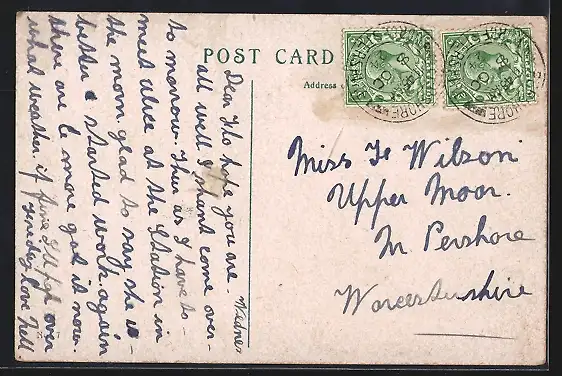 POST CARD
Address
Wednes
Dear Flo hope you are
all well I shant come over
to morrow. Thur as I have to
meet Alice at the Station in
the morn, glad to say she is
better & started work again
there are 6 more gals it now.
what weather. if fine I'll over
Sunday love Nell
Miss F Wilson
Upper Moor.
Nr Pershore
Worcestershire